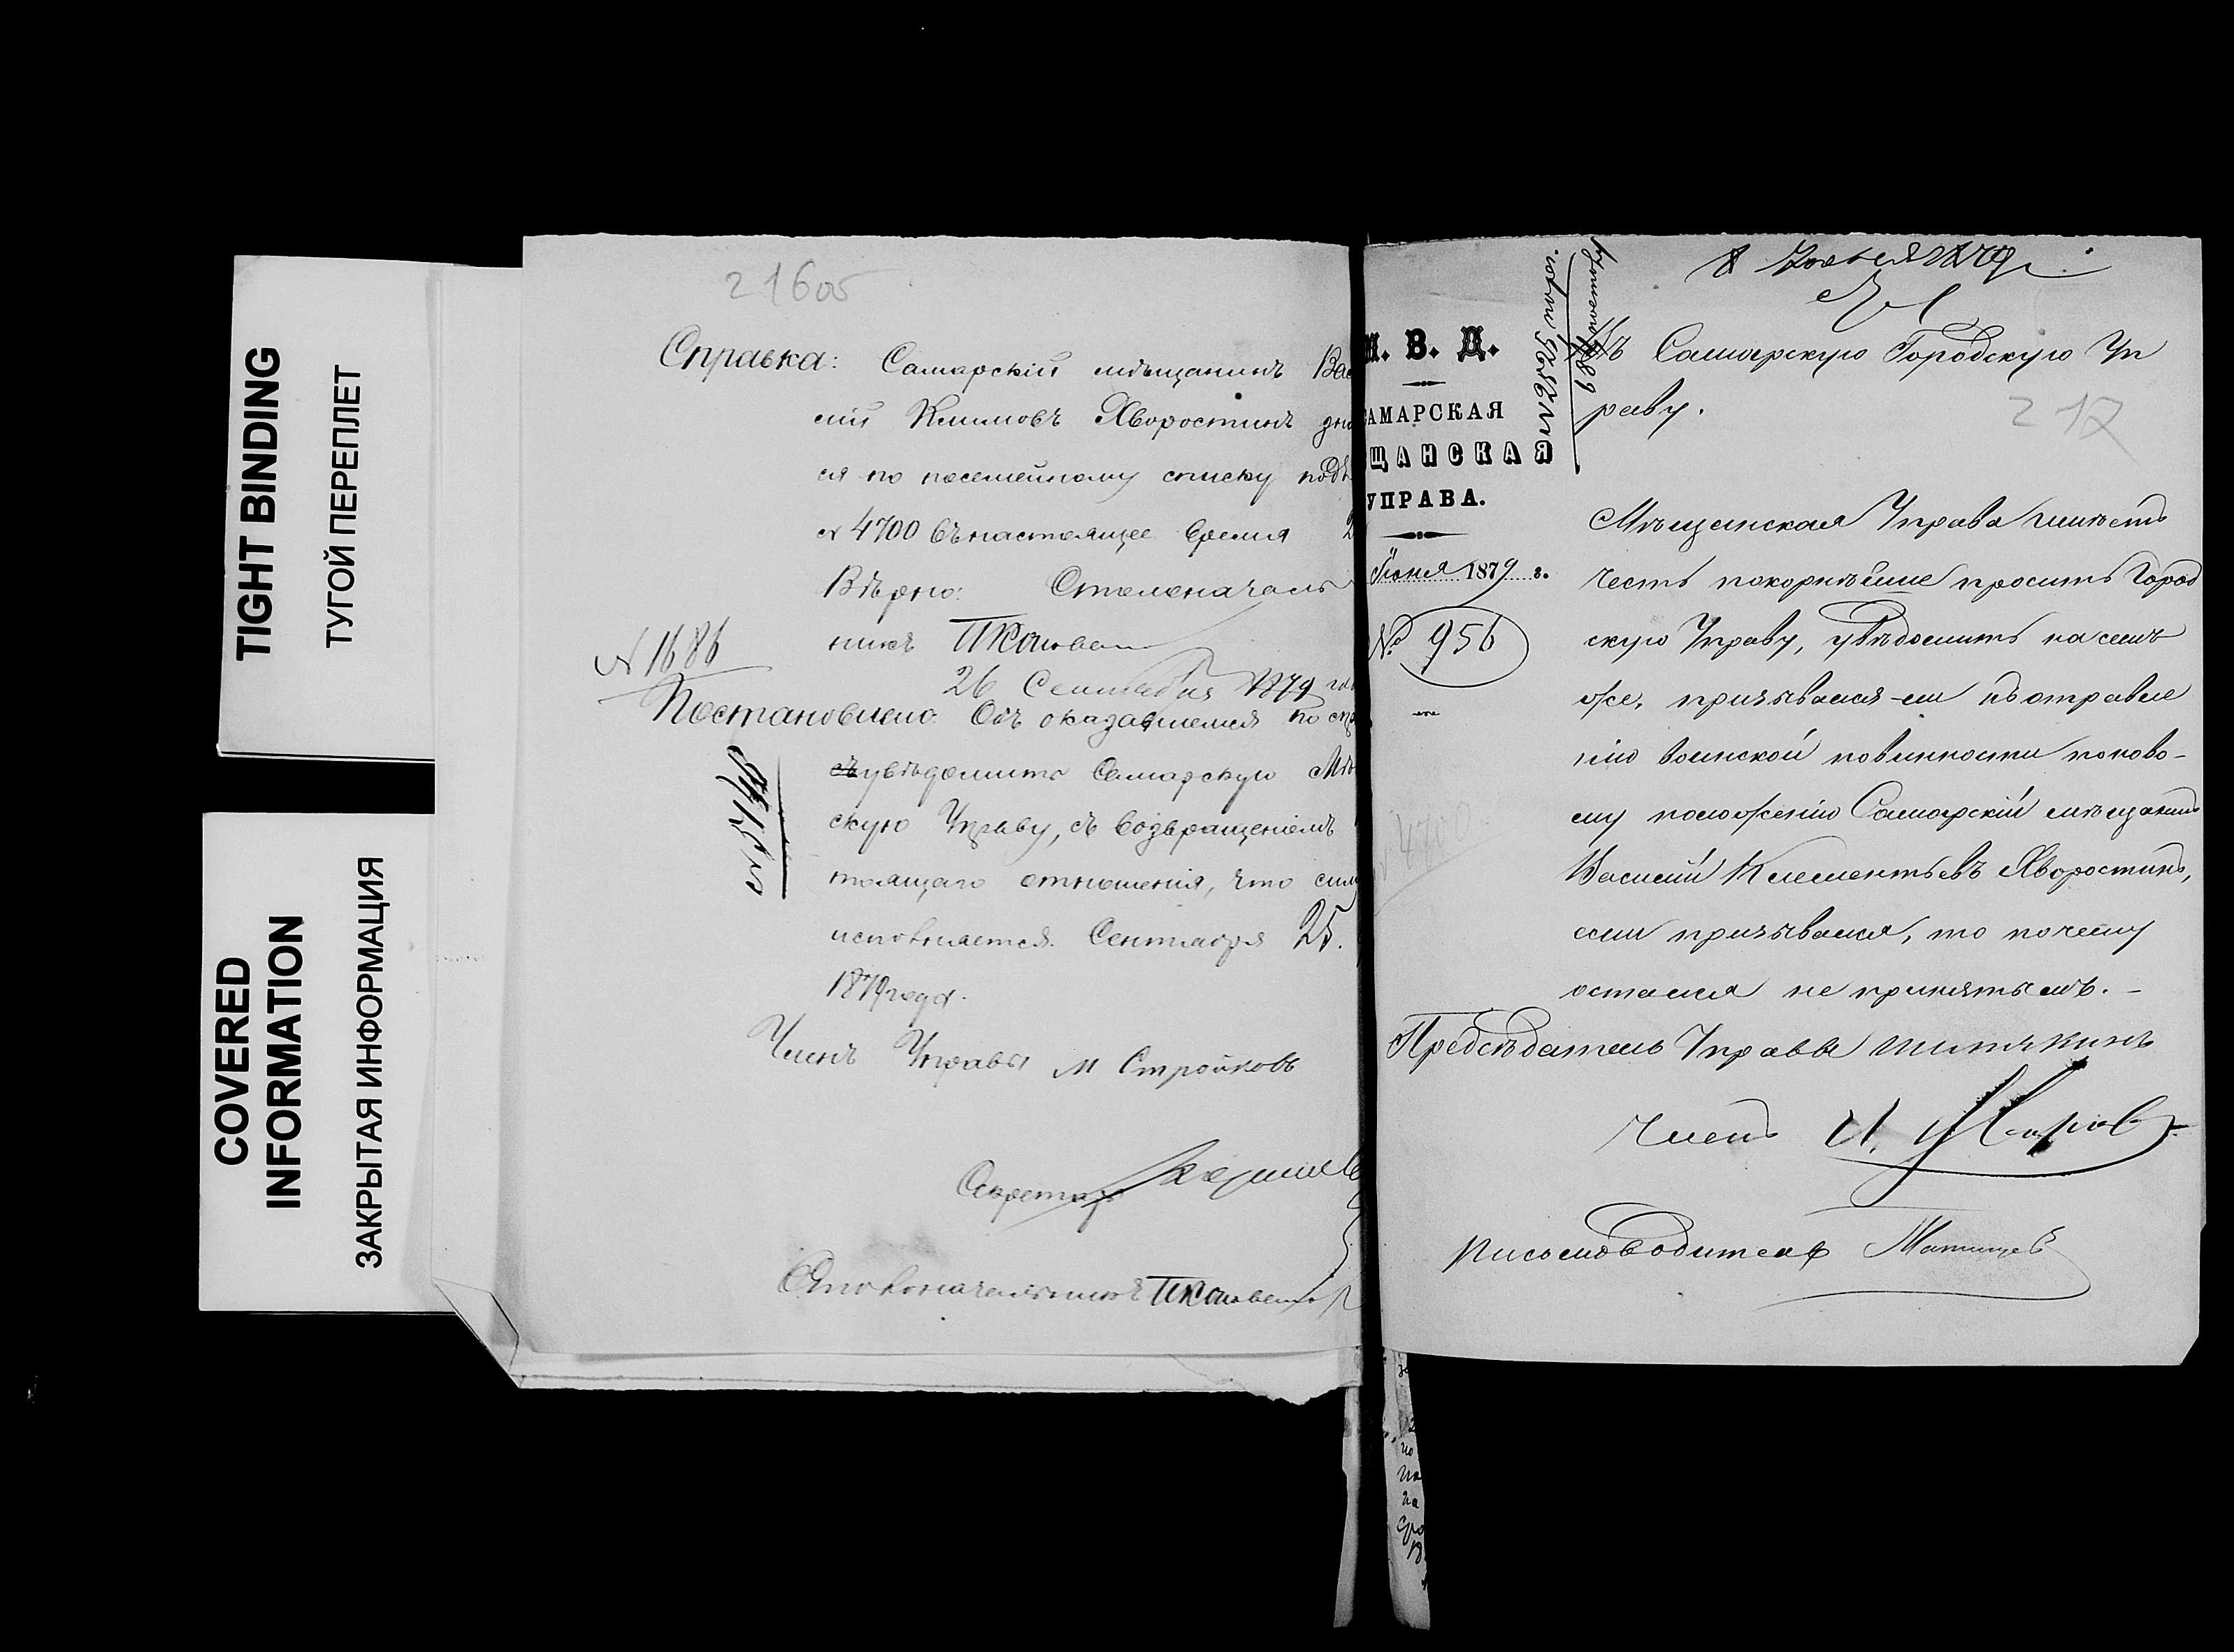 TIGHT BINDING
ТУГОЙ ПЕРЕПЛЕТ
COVERED
INFORMATION
ЗАКРЫТАЯ ИНФОРМАЦИЯ
216об
Справка: Самарскій мѣщанинъ Вас
лій Климовъ Хворостинъ зна
ся по посемейному списку подъ
№ 4700 въ настоящее время 2
Вѣрно: Столоначаль
никъ
№ 1686
26 Сентября 1879 го
Постановлено: Объ оказавшемся по спр
съ увѣдомить Самарскую Мѣ
скую Управу, съ возвращеніемъ
тоящаго отношенія, что симъ
исполняется. Сентября 25.
1879 года.
Членъ Управы М Стройковъ
Секретарь
Столоначальникъ
8 Іюня 1879 г.
М. В. Д.
САМАРСКАЯ
ЩАНСКАЯ
УПРАВА.
Іюня 1879 г.
№ 956
4700
Въ Самарскую Городскую Уп
раву.
217
Мѣщанская Управа имѣетъ
честь покорнѣйше просить Город
скую Управу, увѣдомить на семъ
же, призывался-ли къ отправле
нію воинской повинности по ново-
му положенію Самарскій мѣщанинъ
Василій Клементьевъ Хворостинъ,
если призывался, то почему
остался не принятымъ. -
Предсѣдатель Управы Шитякинъ
Членъ И.
Письмоводитель